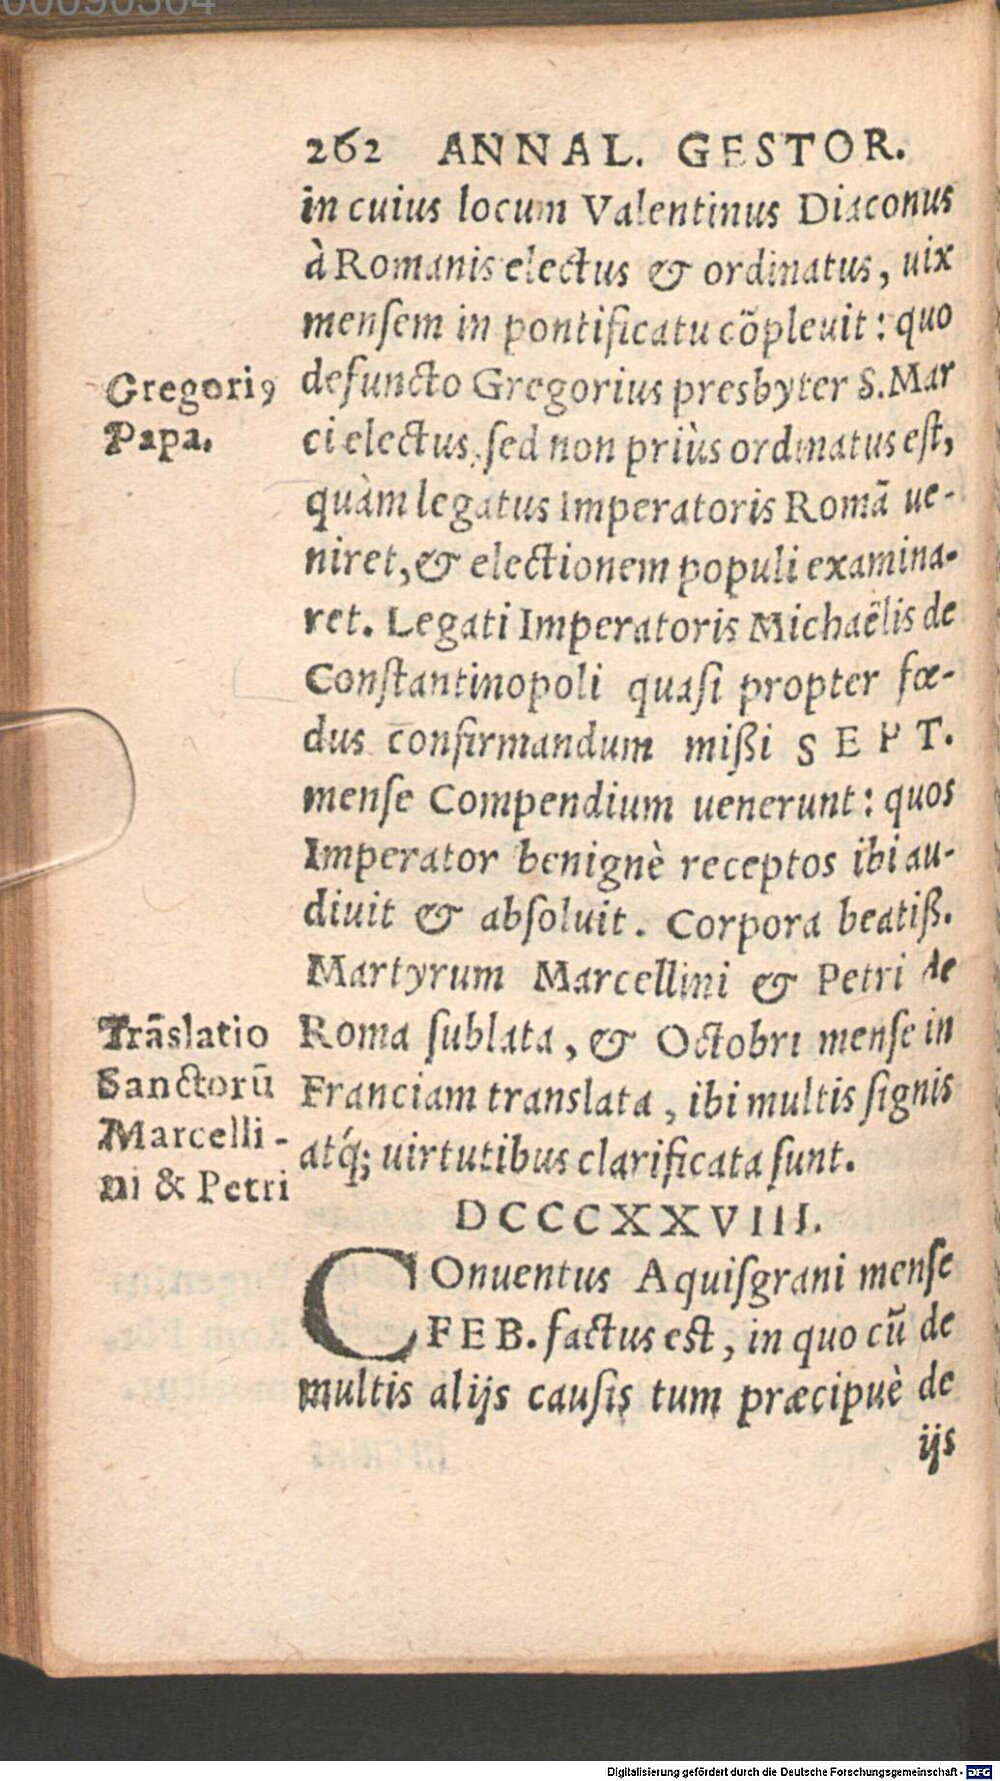 00090304
262 ANNAL. GESTOR.
in cuius locum Valentinus Diaconus
à Romanis electus & ordinatus, uix
mensem in pontificatu cõpleuit: quo
defuncto Gregorius presbyter S. Mar
ci electus, sed non priùs ordinatus est,
quàm legatus Imperatoris Romã ue-
niret, & electionem populi examina-
ret. Legati Imperatoris Michaëlis de
Constantinopoli quasi propter fœ-
dus confirmandum mißi SEPT.
mense Compendium uenerunt: quos
Imperator benignè receptos ibi au-
diuit & absoluit. Corpora beatiß.
Martyrum Marcellini & Petri de
Roma sublata, & Octobri mense in
Franciam translata, ibi multis signis
atq́; uirtutibus clarificata sunt.
Gregoriꝰ
Papa.
Trãslatio
Sanctorũ
Marcelli-
ni & Petri
DCCCXXVIII.
COnuentus Aquisgrani mense
FEB. factus est, in quo cũ de
multis alijs causis tum præcipuè de
ijs
Digitalisierung gefördert durch die Deutsche Forschungsgemeinschaft - DFG